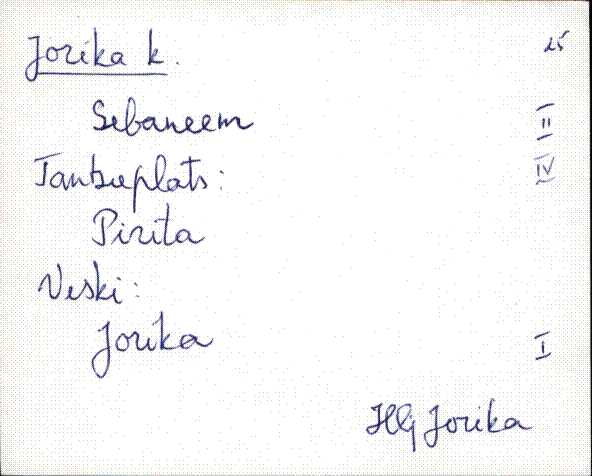 Jorika k. 25
Sebaneem II
Tantsuplats: IV
Pirita
Veski:
Jorika I
Hlj Jorika